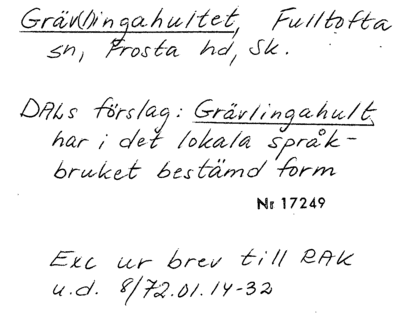 Gräv(l)ingahultet, Fulltofta
sn, Frosta hd, Sk.
DALs förslag: Grävlingahult,
har i det lokala språk-
bruket bestämd form
Nr 17249
Exc ur brev till RAK
u.d. 8/72.01.14-32